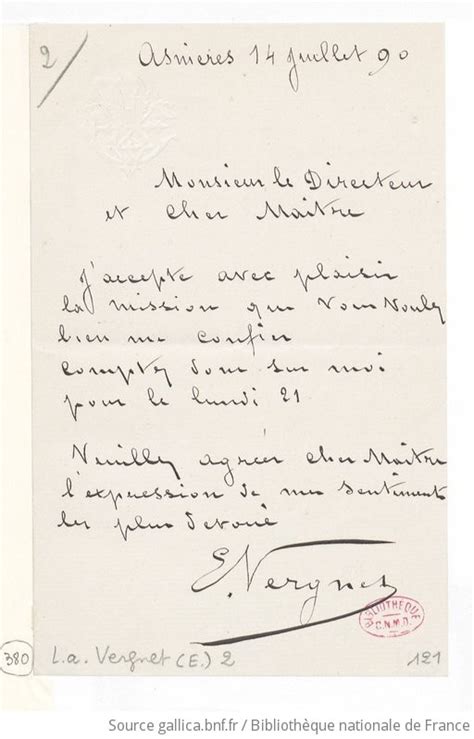 2/
Asnieres 14 juillet 90
Monsieur le Directeur
et cher Maître
J'accepte avec plaisir
la mission que vous voulez
bien me confier
comptez donc sur moi
pour le lundi 21
Veuillez agréer cher Maître
l'expression de mes sentiments
les plus devoué
E. Vergnet
BIBLIOTHEQUE
C.N.M.D.
380 L.a. Vergnet (E.) 2 121
Source gallica.bnf.fr / Bibliothèque nationale de France